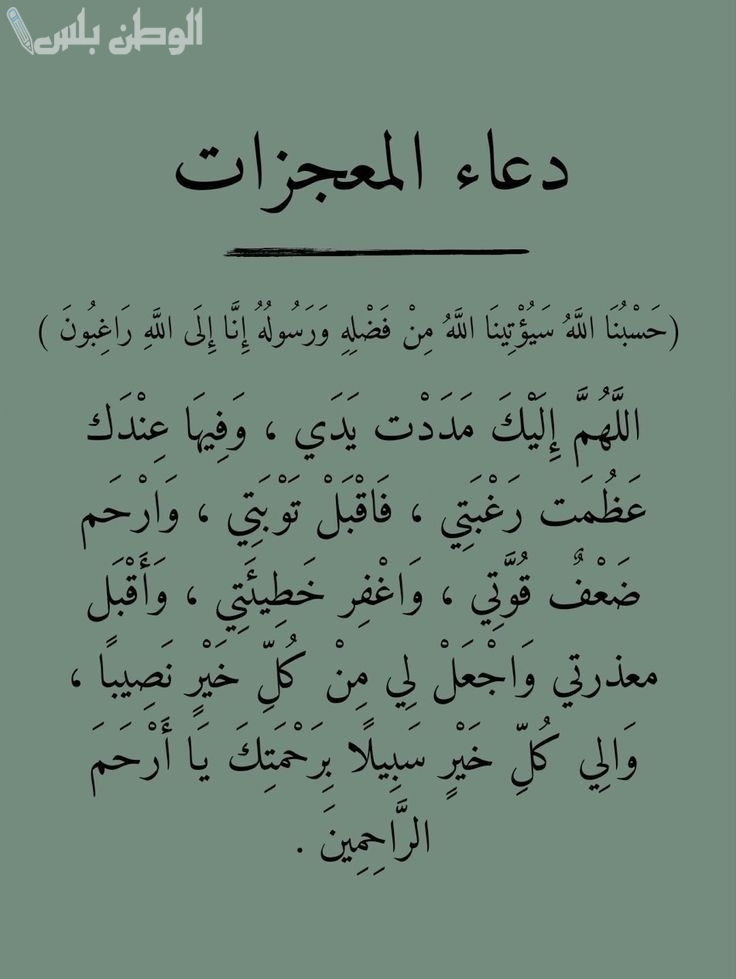 الوطن بلس
دعاء المعجزات
(حَسْبُنَا اللَّهُ سَيُؤْتِينَا اللَّهُ مِنْ فَضْلِهِ وَرَسُولُهُ إِنَّا إِلَى اللَّهِ رَاغِبُونَ )
اللَّهُمَّ إِلَيْكَ مَدَدْت يَدَي ، وَفِيهَا عِنْدَك
عَظُمَت رَغْبَتِي ، فَاقْبَلْ تَوْبَتِي ، وَارْحَم
ضَعْفٌ قُوَّتِي ، وَاغْفِر خَطِيئَتِي ، وَأَقْبَل
معذرتي وَاجْعَلْ لِي مِنْ كُلِّ خَيْرٍ نَصِيبًا ،
وَالِي كُلِّ خَيْرٍ سَبِيلًا بِرَحْمَتِكَ يَا أَرْحَمَ
الرَّاحِمِينَ .